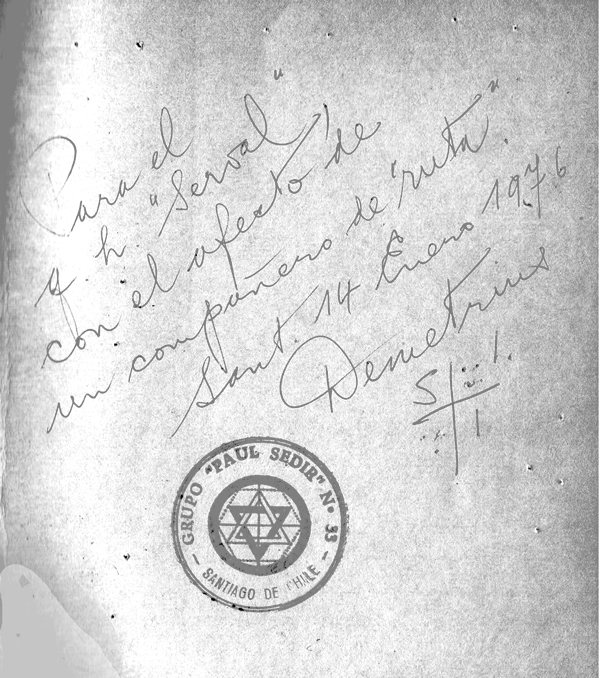 Para el
q. h. "Serval"
con el afecto de
un compañero de "ruta".
Sant. 14 Enero 1976
Demetrius
S I
I
GRUPO "PAUL SEDIR" Nº 33
— SANTIAGO DE CHILE —